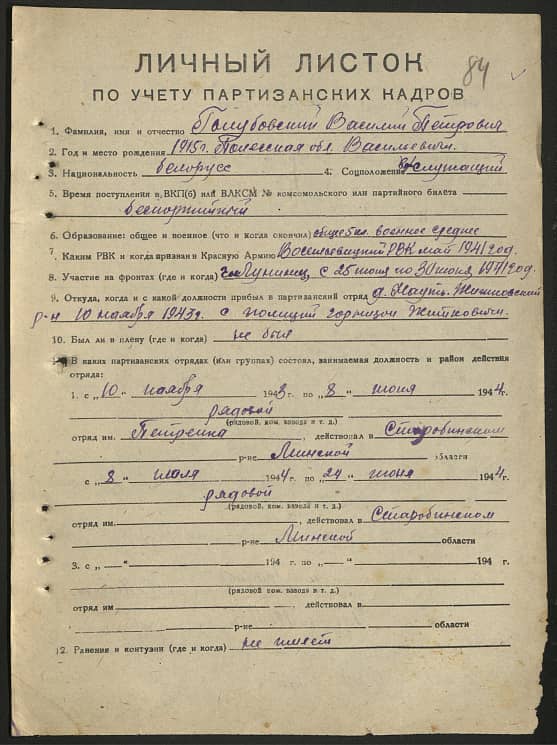 84
ЛИЧНЫЙ ЛИСТОК
ПО УЧЕТУ ПАРТИЗАНСКИХ КАДРОВ
1. Фамилия, имя и отчество Голубовский Василий Петрович
2. Год и место рождения 1915г. Полесская обл. Василевичи.
3. Национальность белорусс 4. Соцположение служащий
5. Время поступления в ВКП(б) или ВЛКСМ № комсомольского или партийного билета
беспортийный
6. Образование: общее и военное (что и когда окончил) военное среднее
7. Каким РВК и когда призван в Красную Армию РВК май 1941 год.
8. Участие на фронтах (где и когда) г. Лунинец с 25 июня по 30 июня 1941 год.
9. Откуда, когда и с какой должности прибыл в партизанский отряд д.
р-н 10 ноября 1943 г. с полиции Житковичи.
10. Был ли в плену (где и когда) не был
В каких партизанских отрядах (или группах) состоял, занимаемая должность и район действия
отряда:
1. с „10" ноября 1943 г. по „8" июня 1944 г.
рядовой
(рядовой, ком. взвода и т. д.)
отряд им. Петренка, действовал в Старобинском
р-не Минской области
с „8" июля 1944 г. по „24" июня 1944 г.
рядовой
(рядовой, ком. взвода и т. д.)
отряд им. , действовал в Старобинском
р-не Минской области
3. с „ " 194 г. по „ " 194 г.
(рядовой, ком. взвода и т. д.)
отряд им , действовал в
р-не области
2. Ранения и контузии (где и когда) не имеет